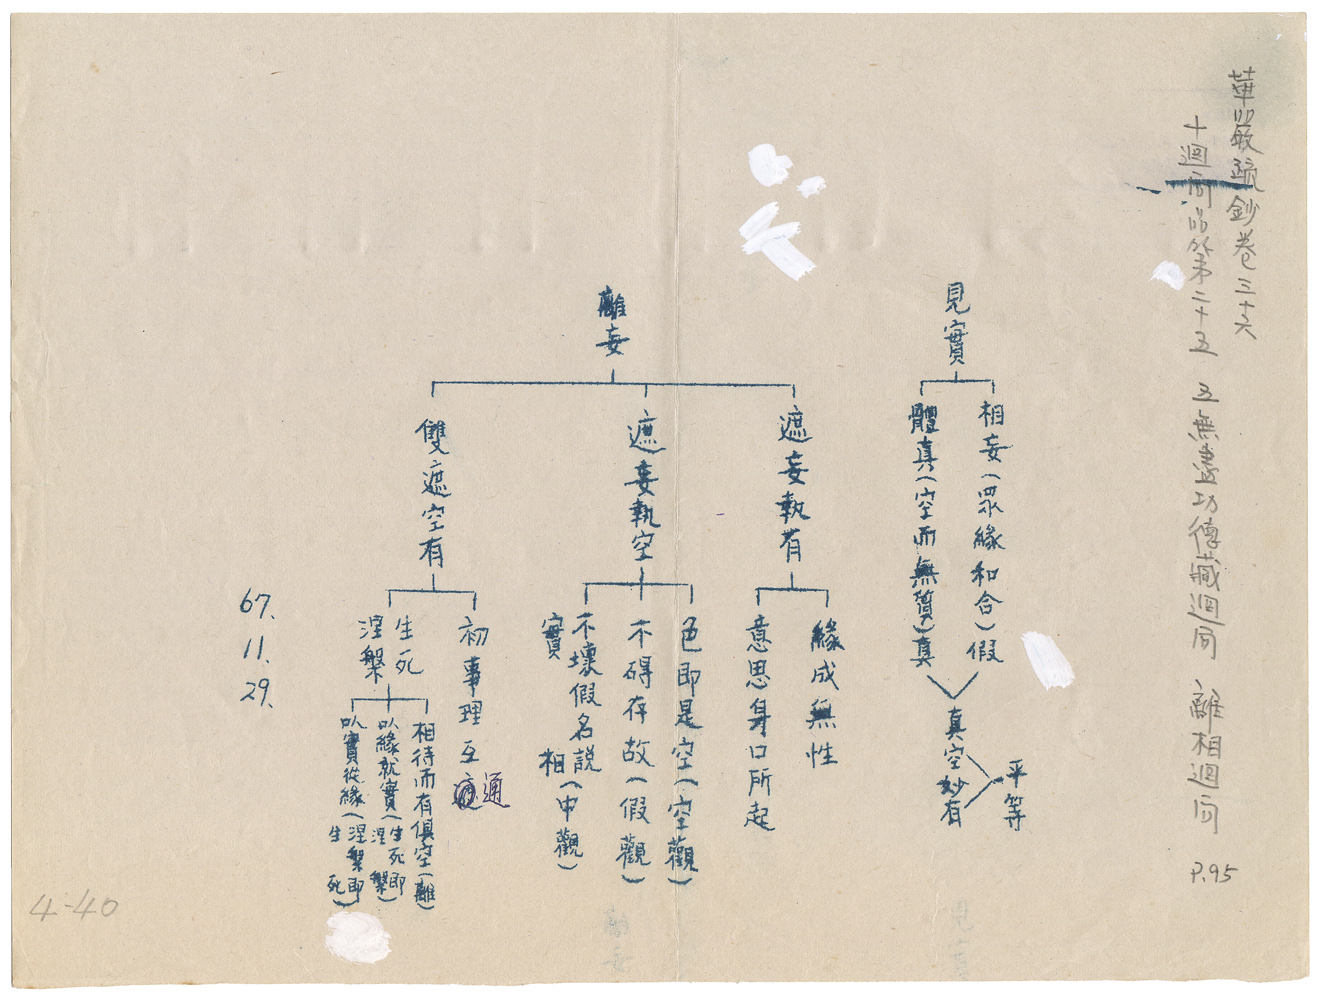 華嚴疏鈔卷三十六
十迴向品第二十五 五無盡功德藏迴向 離相迴向 P.95
見實
相妄(眾緣和合)假
體真(空而無質)真
真空妙有
平等
離妄
遮妄執有
緣成無性
意思身口所起
遮妄執空
色即是空(空觀)
不碍存故(假觀)
不壞假名說實相(中觀)
雙遮空有
初事理互通
生死涅槃
相待而有俱空(離)
以緣就實(生死即涅槃)
以實從緣(涅槃即生死)
67.
11.
29.
4-40